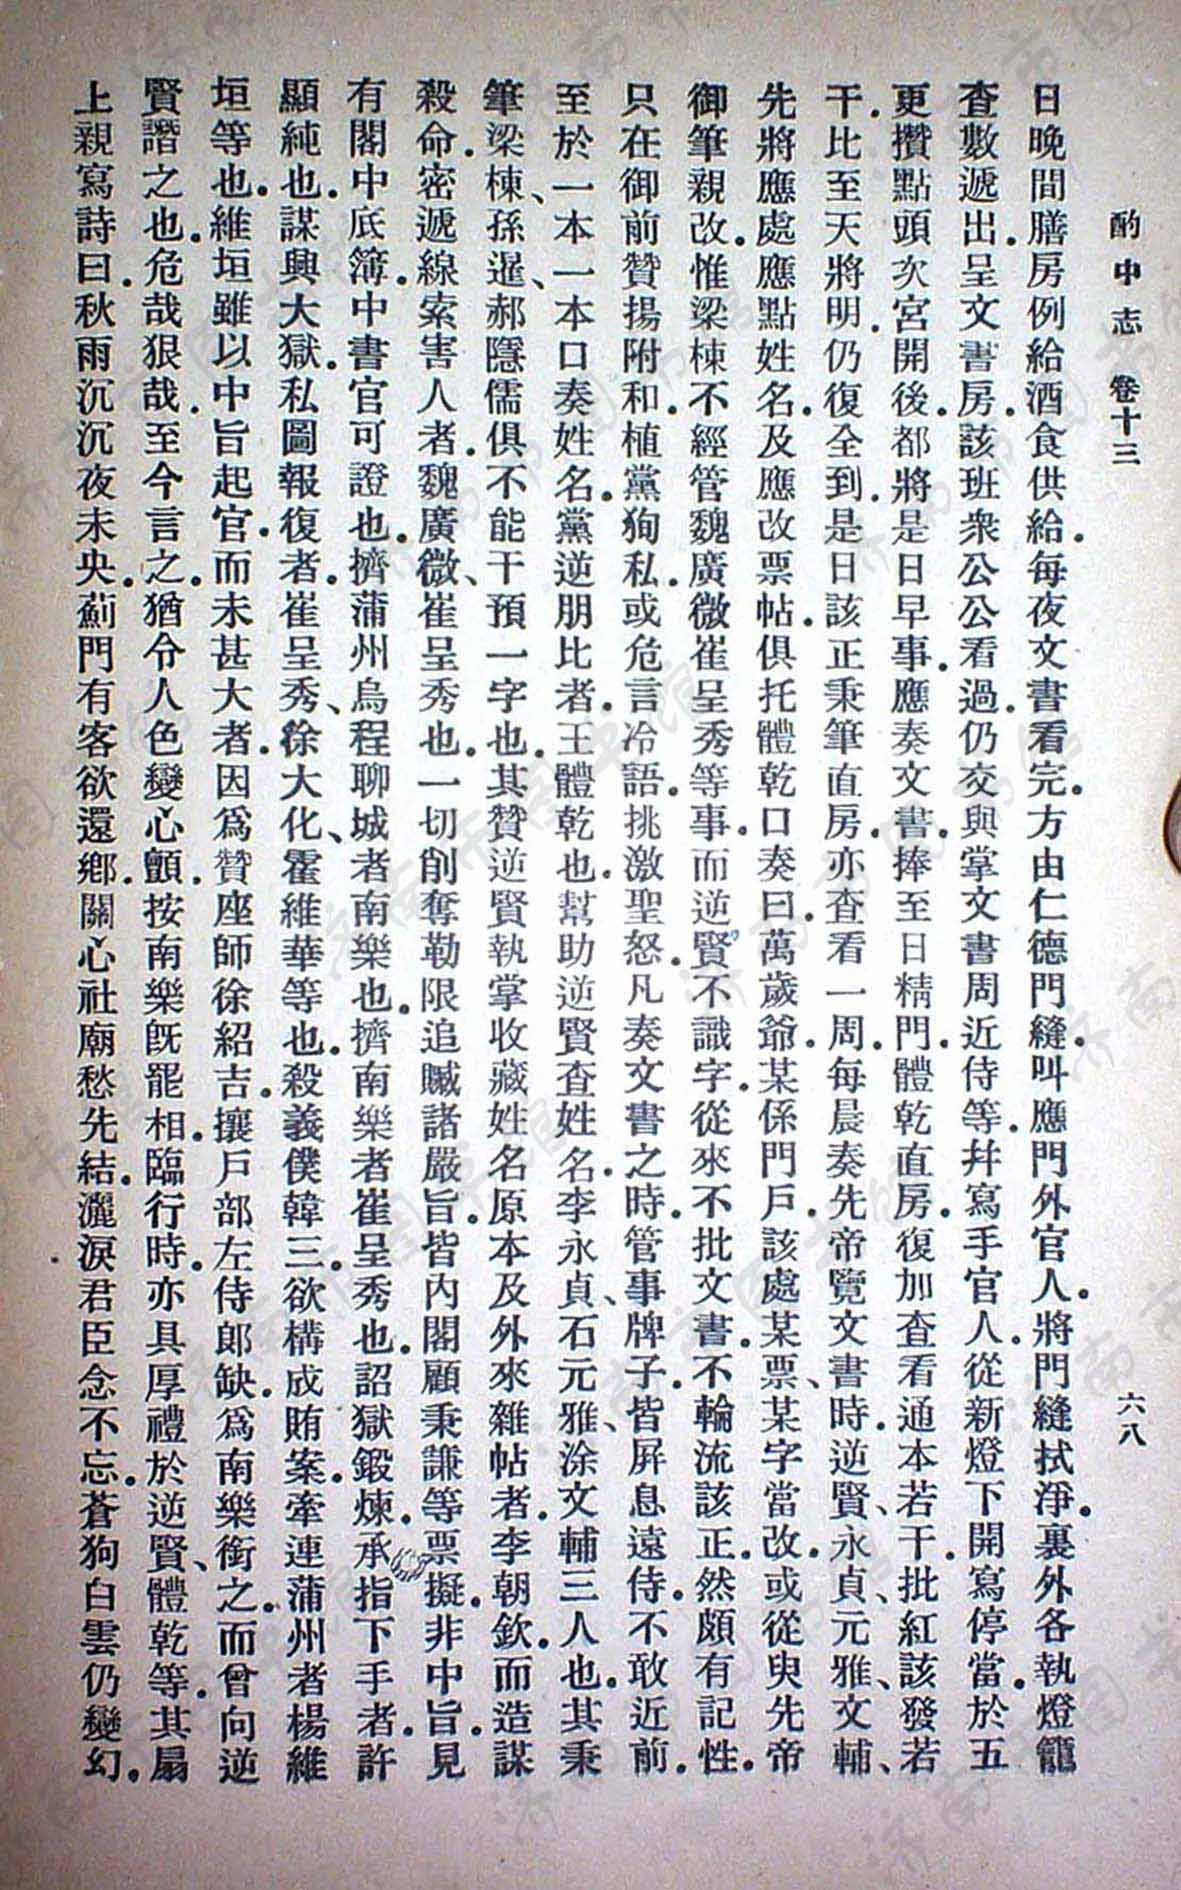 酌中志 卷十三
六八
日晚間膳房例給酒食供給。每夜文書看完。方由仁德門縫叫應門外官人。將門縫拭淨。裏外各執燈籠
查數遞出。呈文書房。該班衆公公看過。仍交與掌文書周近侍等。幷寫手官人。從新燈下開寫停當。於五
更攢點頭次宮開後。都將是日早事。應奏文書。捧至日精門。體乾直房。復加查看通本若干。批紅該發若
干。比至天將明。仍復全到。是日該正秉筆直房。亦查看一周。每晨奏先帝覽文書時。逆賢、永貞、元雅、文輔、
先將應處應點姓名。及應改票帖。俱托體乾口奏曰。萬歲爺。某係門戶。該處某票、某字當改。或從臾先帝
御筆親改。惟梁棟不經管魏廣微崔呈秀等事。而逆賢不識字。從來不批文書。不輪流該正。然頗有記性。
只在御前贊揚附和。植黨狥私。或危言冷語。挑激聖怒。凡奏文書之時。管事牌子。皆屏息遠侍。不敢近前。
至於一本一本口奏姓名。黨逆朋比者。王體乾也。幫助逆賢查姓名。李永貞、石元雅、涂文輔三人也。其秉
筆。梁棟、孫暹、郝隱儒俱不能干預一字也。其贊逆賢執掌收藏姓名原本及外來雜帖者。李朝欽。而造謀
殺命。密遞線索害人者。魏廣微、崔呈秀也。一切削奪勒限追贓諸嚴旨。皆內閣顧秉謙等票擬。非中旨。見
有閣中底簿。中書官可證也。擠蒲州烏程聊城者南樂也。擠南樂者崔呈秀也。詔獄鍛煉。承指下手者。許
顯純也。謀興大獄。私圖報復者。崔呈秀、徐大化、霍維華等也。殺義僕韓三。欲構成賄案。牽連蒲州者楊維
垣等也。維垣雖以中旨起官。而未甚大者。因爲贊座師徐紹吉。攘戶部左侍郎缺。爲南樂銜之。而曾向逆
賢譖之也。危哉狠哉。至今言之。猶令人色變心顫。按南樂旣罷相。臨行時。亦具厚禮於逆賢、體乾等。其扇
上親寫詩曰。秋雨沉沉夜未央。薊門有客欲還鄉。關心社廟愁先結。灑淚君臣念不忘。蒼狗白雲仍變幻。